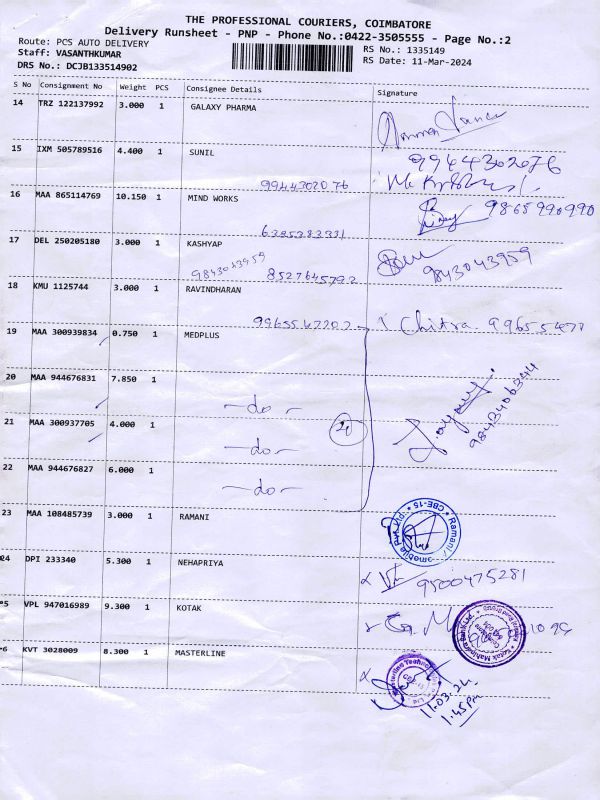 THE PROFESSIONAL COURIERS, COIMBATORE
Delivery Runsheet - PNP - Phone No.:0422-3505555 - Page No.:2
Route: PCS AUTO DELIVERY RS No.: 1335149
Staff: VASANTHKUMAR RS Date: 11-Mar-2024
DRS No.: DCJB133514902
S No Consignment No Weight PCS Consignee Details Signature
14 TRZ 122137992 3.000 1 GALAXY PHARMA
15 IXM 505789516 4.400 1 SUNIL 9944302076
9944302076
16 MAA 865114769 10.150 1 MIND WORKS 9865990990
6385383331
17 DEL 250205180 3.000 1 KASHYAP 9843043959
9843043959 8527645792
18 KMU 1125744 3.000 1 RAVINDHARAN
9965547707 Chitra. 99655477
19 MAA 300939834 0.750 1 MEDPLUS
20 MAA 944676831 7.850 1
-do-
21 MAA 300937705 4.000 1
-do-
22 MAA 944676827 6.000 1
-do-
23 MAA 108485739 3.000 1 RAMANI
CBE-15
24 DPI 233340 5.300 1 NEHAPRIYA
9500475281
5 VPL 947016989 9.300 1 KOTAK
6 KVT 3028009 8.300 1 MASTERLINE
11.03.24
1.45pm